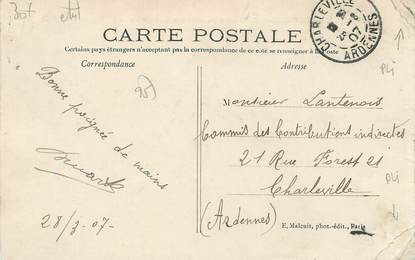 Bot etat
CARTE POSTALE
Certains pays étrangers n'acceptant pas la correspondance de ce côté se renseigner à la Poste
Correspondance
Adresse
CHARLEVILLE
07
ARDENNES
Pli
25
Bonne poignée de mains
28/3-07-
Monsieur Lantenois
Commis des Contributions indirectes
21 Rue Forest 21
Charleville
(Ardennes)
Pli
E. Malcuit, phot.-édit., Paris